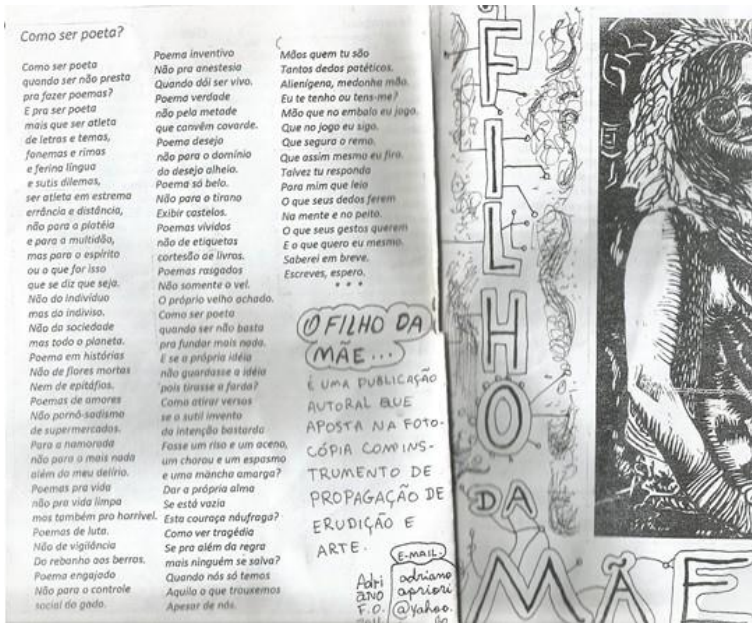 Como ser poeta?
Como ser poeta
quando ser não presta
pra fazer poemas?
E pra ser poeta
mais que ser atleta
de letras e temas,
fonemas e rimas
e ferina língua
e sutis dilemas,
ser atleta em estrema
errância e distância,
não para a platéia
e para a multidão,
mas para o espírito
ou o que for isso
que se diz que seja.
Não do indivíduo
mas do indiviso.
Não da sociedade
mas todo o planeta.
Poema em histórias
Não de flores mortas
Nem de epitáfios.
Poemas de amores
Não pornô-sadismo
de supermercados.
Para a namorada
não para o mais nada
além do meu delírio.
Poemas pra vida
não pra vida limpa
mas também pro horrível.
Poemas de luta.
Não de vigilância
Do rebanho aos berros.
Poema engajado
Não para o controle
social do gado.
Poema inventivo
Não pra anestesia
Quando dói ser vivo.
Poema verdade
não pela metade
que convêm covarde.
Poema desejo
não para o domínio
do desejo alheio.
Poema só belo.
Não para o tirano
Exibir castelos.
Poemas vividos
não de etiquetas
cortesão de livros.
Poemas rasgados
Não somente o vel.
O próprio velho achado.
Como ser poeta
quando ser não basta
pra fundar mais nada.
E se a própria idéia
não guardasse a idéia
pois tirasse a farda?
Como atirar versos
se o sutil invento
da intenção bastarda
Fosse um riso e um aceno,
um chorou e um espasmo
e uma mancha amarga?
Dar a própria alma
Se está vazia
Esta couraça náufraga?
Como ver tragédia
Se pra além da regra
mais ninguém se salva?
Quando nós só temos
Aquilo o que trouxemos
Apesar de nós.
Mãos quem tu são
Tantos dedos patéticos.
Alienígena, medonha mão.
Eu te tenho ou tens-me?
Mão que no embalo eu jogo.
Que no jogo eu sigo.
Que segura o remo.
Que assim mesmo eu firo.
Talvez tu responda
Para mim que leio
O que seus dedos ferem
Na mente e no peito.
O que seus gestos querem
E o que quero eu mesmo.
Saberei em breve.
Escreves, espero.
* * *
O FILHO DA
MÃE...
É UMA PUBLICAÇÃO
AUTORAL QUE
APOSTA NA FOTO-
CÓPIA COM INS-
TRUMENTO DE
PROPAGAÇÃO DE
ERUDIÇÃO E
ARTE.
E-MAIL.
adriano
apriori
@yahoo.
Adri
ano
F.O.
O
FILHO
DA
MÃE